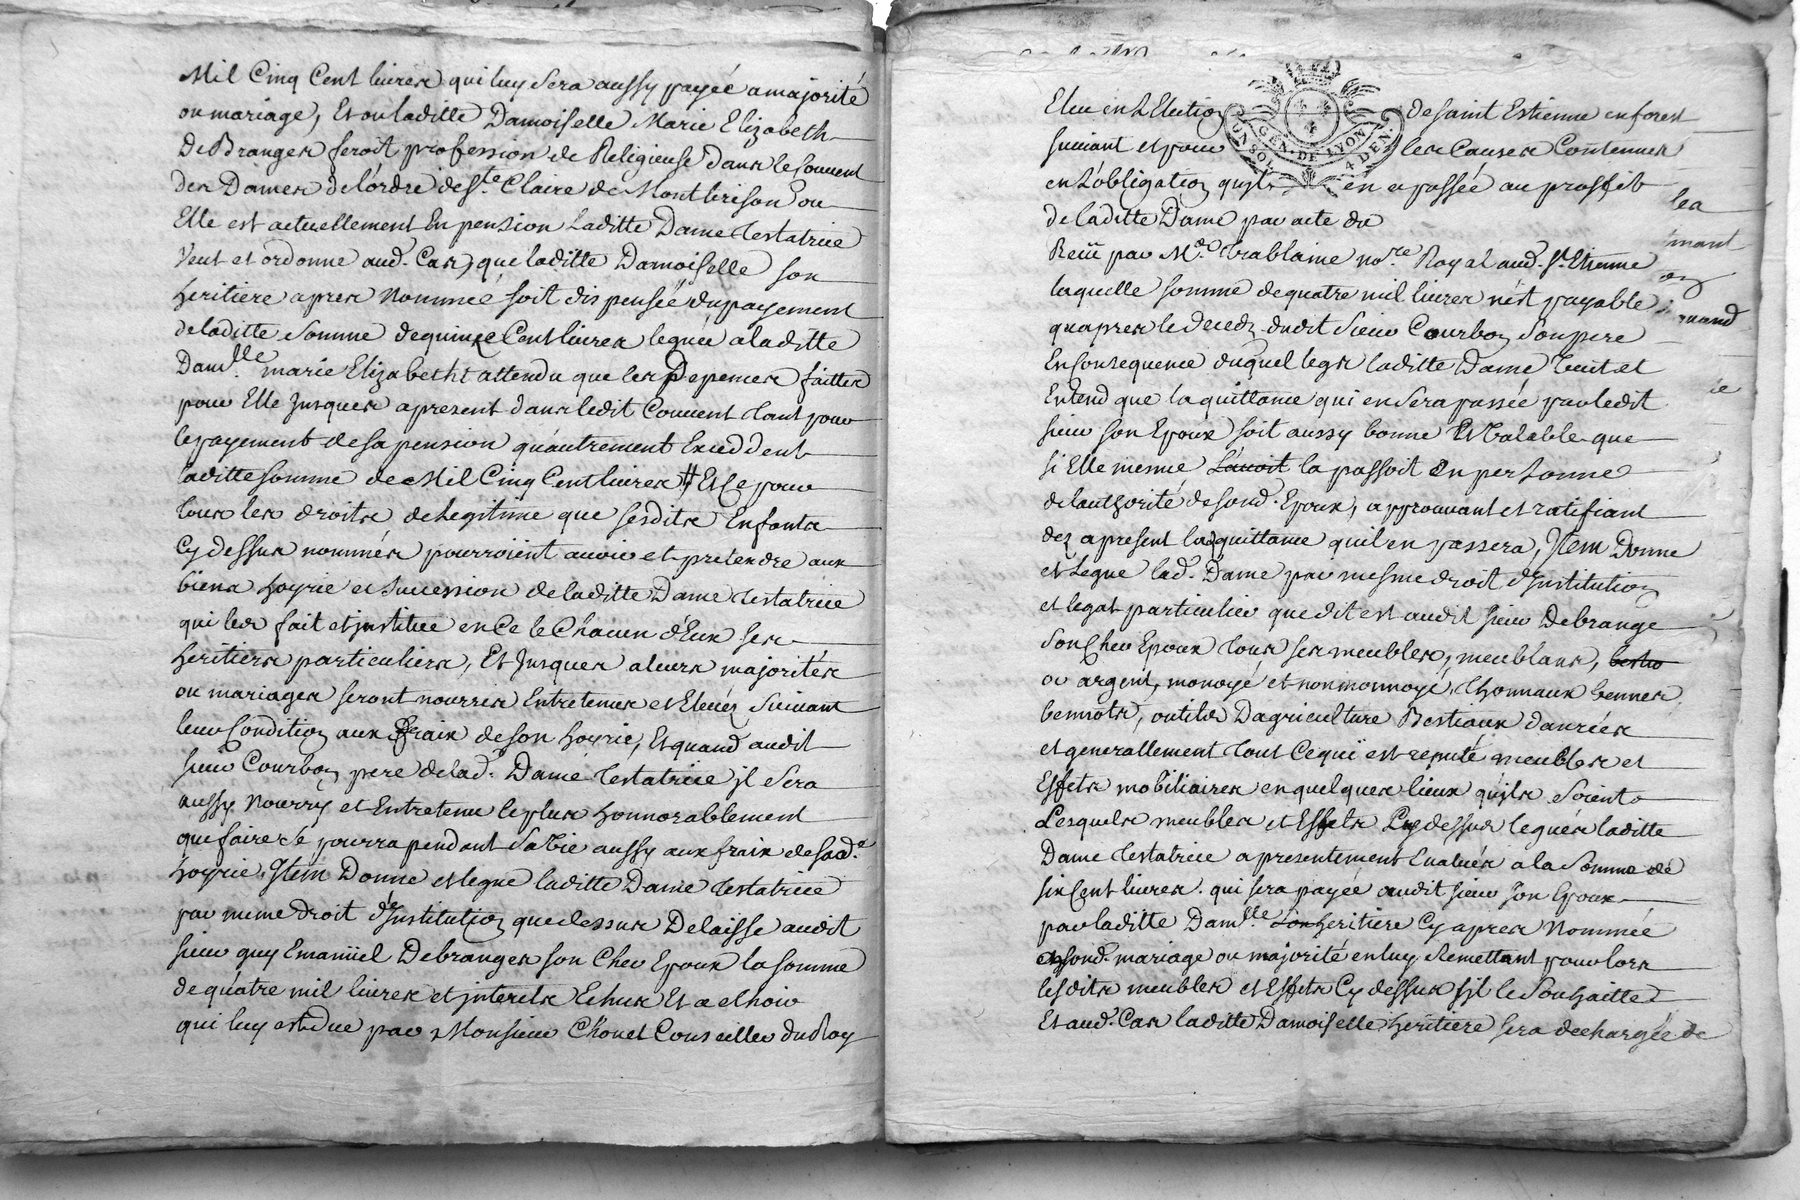 Mil Cinq Cent livres qui luy sera aussy payée a majorité
ou mariage, Et ou laditte Damoiselle Marie Elizabeth
De Branges feroit profession de Religieuse dans le Couvent
des Dames de l'ordre de Ste Claire de Montbrison ou
Elle est actuellement En pension Laditte Dame testatrice
Veut et ordonne aud. Cas, que laditte Damoiselle son
heritiere apres Nommeé soit dispensée du payement
de laditte somme de quinze Cent livres leguée a laditte
Damlle marie Elizabetht attendu que les Depences faittes
pour Elle Jusques a present dans ledit Couvent tant pour
le payement de sa pension qu'autrement Exceddent
laditte somme de Mil Cinq Cent livres # Et Ce pour
tous les droits de Legitime que sesdits Enfants
Cy dessus nommés pourroient avoir et pretendre aux
biens hoyrie et succession de laditte Dame testatrice
qui les fait et institue en Ce le Chacun d'Eux ses
heritiers particuliers, Et Jusques a leurs majorités
ou mariages seront nourris Entretenus et Elevéz suivant
leur Condition aux fraix de son hoyrie, Et quand audit
sieur Courbon pere de lad. Dame testatrice jl sera
aussy Nourry et Entretenu le plus honnorablement
que faire se pourra pendant sa Vie aussy aux fraix de sad.e
hoyrie, Jtem Donne et legue laditte Dame testatrice
par meme droit d'Institution que dessus Delaisse audit
sieur guy Emanüel Debranges son Cher Epoux la somme
de quatre mil livres et jnterets Echus Et a echoir
qui luy est due par Monsieur Chovet Conseiller du Roy
Eleu en L'Election de saint Estienne en forest
suivant et pour les Causes Contenues
en L'obligation qu'jls en a passée au proffit
de laditte Dame par acte du
Reçu par Me Trablaine nore Royal aud. St. Etienne
laquelle somme de quatre mil livres n'est payable
qu'apres le decedz dudit sieur Courbon son pere
En Consequence duquel legs laditte Dame Veut et
Entend que la quittance qui en sera passée par ledit
sieur son Epoux soit aussy bonne Et Valable que
si Elle meme L'avoit la passoit En personne
de l'authorité de sond. Epoux, approuvant et ratifiant
dez apresent la quittance qu'il en passera, Jtem Donne
et Legue lad. Dame par mesme droit d'Institution
et legat particulier que dit est audit sieur Debrange
son Cher Epoux tous ses meubles, meublans,
or argent, monoyé et non monnoyé, thonnaux bennes
bennots, outils D'agriculture Bestiaux danrées
et generallement tout Ce qui est reputé meubles et
Effets mobiliaires en quelques lieux qu'jls soient
Lesquels meubles et Effets Cy dessus legués laditte
Dame testatrice a presentement Evalués a la somme de
six Cent livres. qui sera payée audit sieur son Epoux
par laditte Damlle son heritiere Cy apres Nommée
sond. mariage ou majorité en luy Remettant pour lors
lesdits meubles et Effets Cy dessus s'jl le souhaitte
Et aud. Cas laditte Damoiselle heritiere sera dechargée de
GEN. DE LYON
UN SOL 4 DEN.